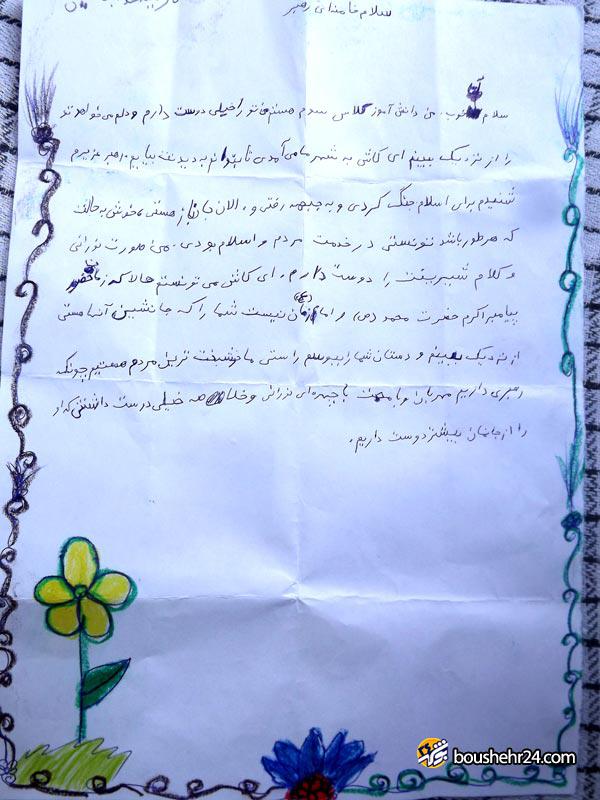 سلام خامنه‌ای رهبر
سلام آقای خوب. من دانش آموز کلاس سوم هستم من تو را خیلی دوست دارم و دلم می خواهد تو
را از نزدیک ببینم ای کاش به شهر ما می آمدی تا بتوانم به دیدنت بیایم. رهبر عزیزم
شنیدم برای اسلام جنگ کردی و به جبهه رفتی و. الان جانباز هستی، خوش به حالت
که هرطور باشد تونستی در خدمت مردم و اسلام بودی. من صورت نورانی
و کلام شیرینت را دوست دارم. ای کاش می تونستم حالا که زمان حضور
پیامبر اکرم حضرت محمد (ص) و امام زمان (عج) نیست شما را که جانشین آنها هستی
از نزدیک ببینم و دستان شما را ببوسم راستی ما خوشبخت ترین مردم هستیم چونکه
رهبری داریم مهربان و با محبت با چهره ای نورانی و خیلی دوست داشتنی که او
را از جانمان بیشتر دوست داریم.
boushehr24.com